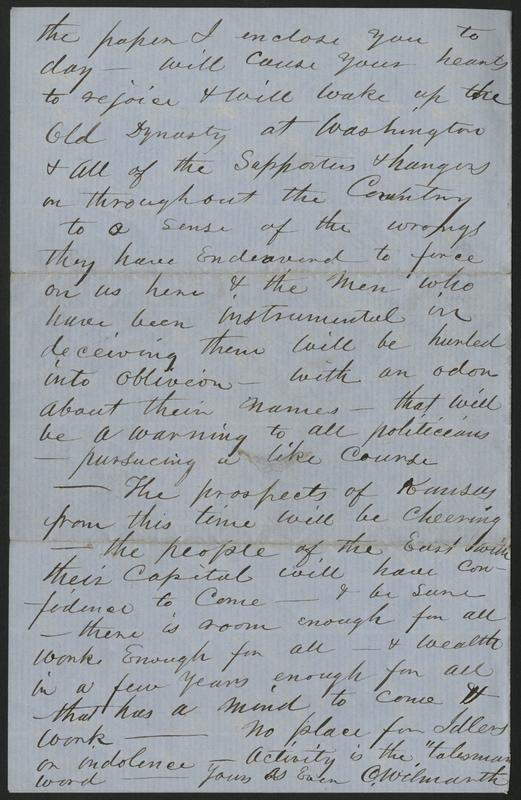 the paper I enclose you to
day — will cause your hearts
to rejoice & will wake up the
Old Dynasty at Washington
& all of the Supporters & hangers
on throughout the Country
to a sense of the wrongs
they have Endeavered to force
on us here & the men who
have been instrumental in
deceiving them will be hurled
into obliveion — with an odor
about their names — that will
be a warning to all politicians
— pursueing a like course
— The prospects of Kansas
from this time will be cheering
— the people of the East with
their Capital will have con-
fidence to come — & be sure
— there is room enough for all
work Enough for all — & wealth
in a few years enough for all
that has a mind to come &
work — No place for Idlers
or indolence — Activity is the "talesman
word — Yours as Ever C. Wilmarth